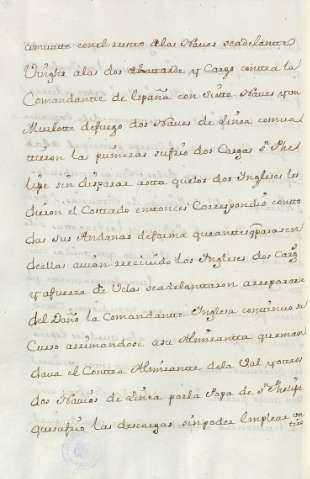 comvatto con el resto de las Naves se adelanta
Virigh a las dos de la tarde y Cargo contra la
Comandante de España con Siete Naves y un
Murlotte de fuego dos Naves de Linea comva
tieron la primeras sufrio dos Cargas Sn Phe
lipe sin disparar asta que los dos Ingleses les
dieron el Costado entonces Correspondio con to
das sus Andanas de forma que antes q pasasen
de ellas avian rrecivido los Ingleses dos Carg
y a fuerza de Velas se adelantaron a rreparar
del Daño la Comandante Inglesa continuo su
Curso arrimandose a su Almiranta que man
dava el Contra Almirante de la Val y otros
dos Navios de Linea por la Popa de Sn Phelipe
que sufrio las descargas sin poder emplear